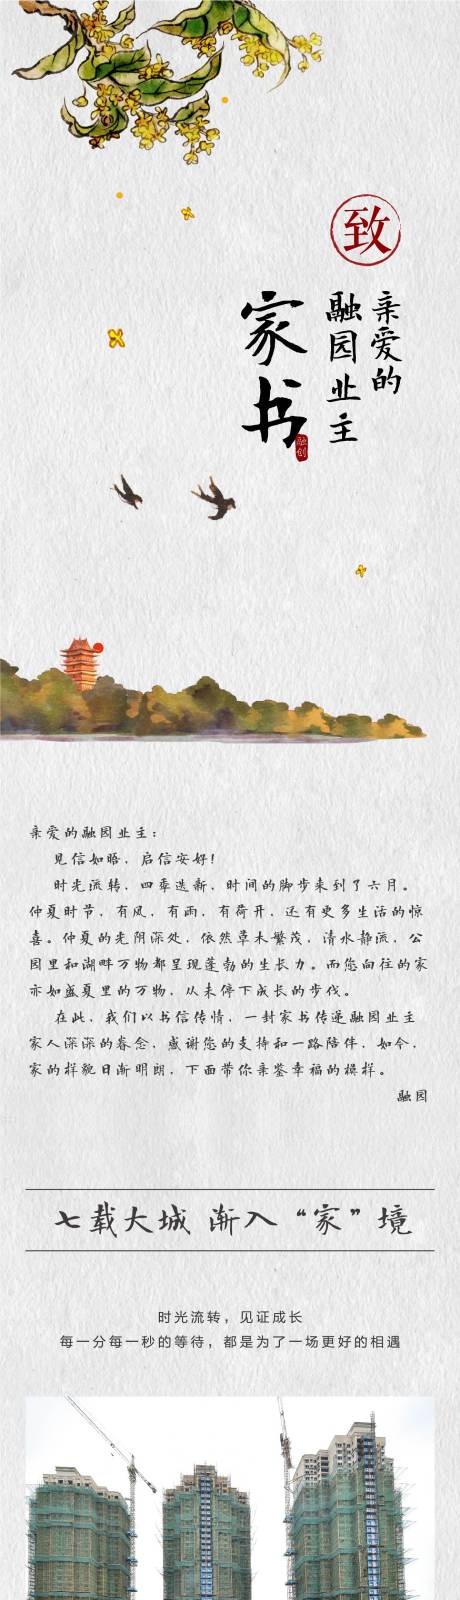 致
亲爱的
融园业主
家书
融创
亲爱的融园业主：
见信如晤，启信安好！
时光流转，四季迭新，时间的脚步来到了六月。
仲夏时节，有风，有雨，有荷开，还有更多生活的惊
喜。仲夏的光阴深处，依然草木繁茂，清水静流，公
园里和湖畔万物都呈现蓬勃的生长力。而您向往的家
亦如盛夏里的万物，从未停下成长的步伐。
在此，我们以书信传情，一封家书传递融园业主
家人深深的眷念，感谢您的支持和一路陪伴，如今，
家的样貌日渐明朗，下面带你亲鉴幸福的模样。
融园
七载大城 渐入“家”境
时光流转，见证成长
每一分每一秒的等待，都是为了一场更好的相遇